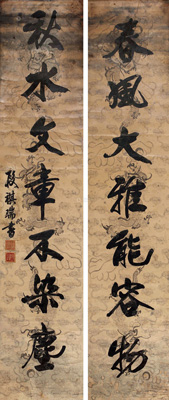 春風大雅能容物
秋水文章不染塵
段祺瑞書